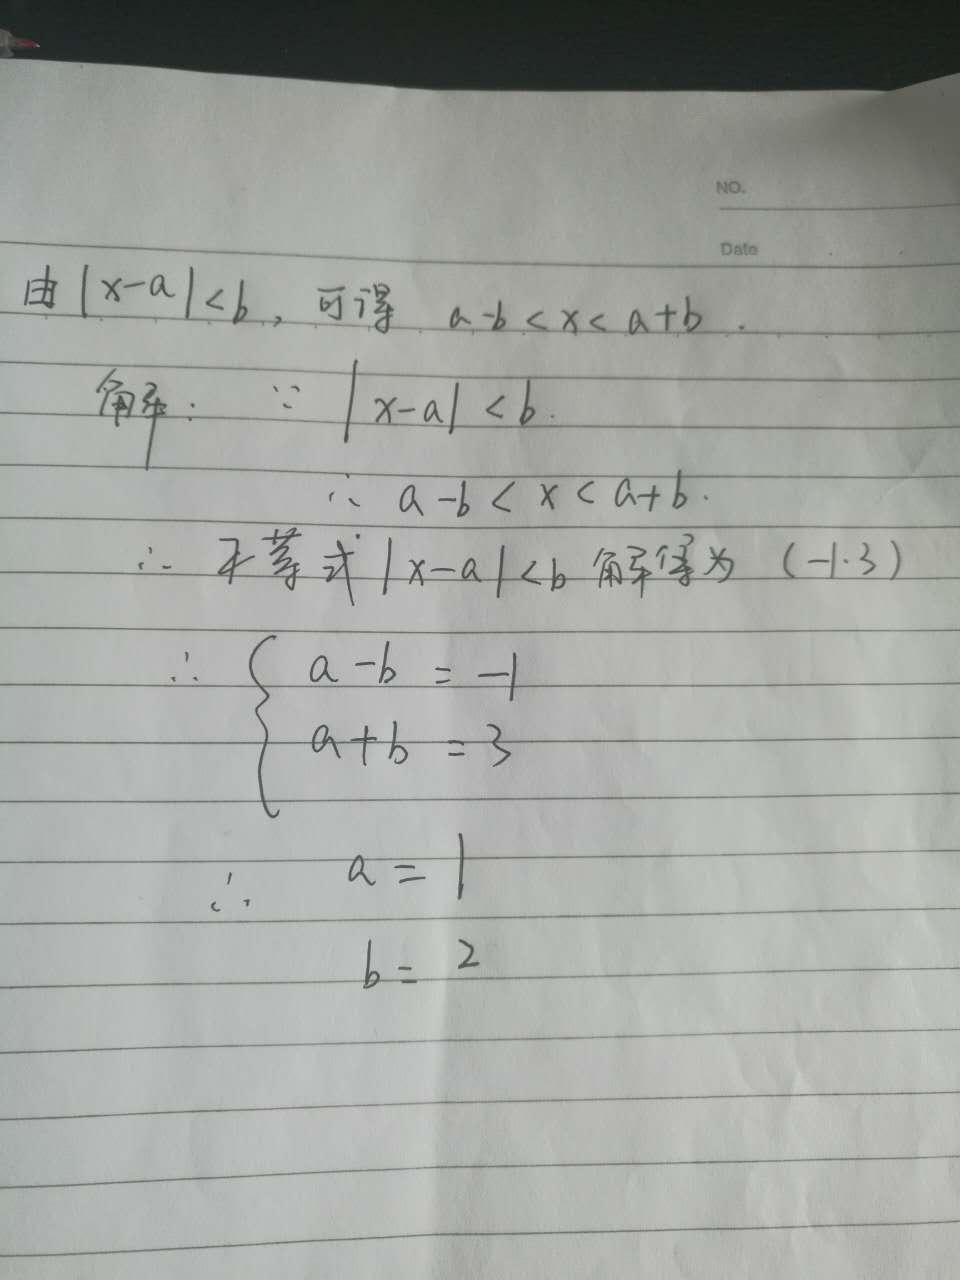 NO.
Date
由|x-a|<b, 可得 a-b<x<a+b.
解: ∵ |x-a|<b.
∴ a-b<x<a+b.
∴ 不等式|x-a|<b 解得为 (-1.3)
∴ { a-b=-1
a+b=3
∴ a=1
b=2